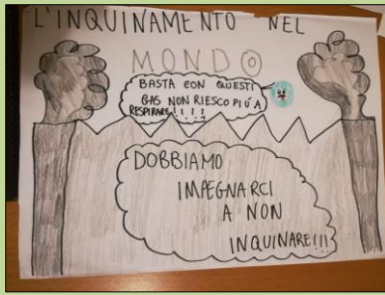 L'INQUINAMENTO NEL
MONDO
BASTA CON QUESTI
GAS NON RIESCO PIÚ A
RESPIRARE!!!!
DOBBIAMO
IMPEGNARCI
A NON
INQUINARE!!!